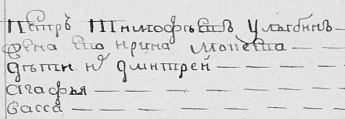 Петръ Тимофѣевъ Улыбинъ
жена его Ирина Мокѣева
дѣти их Дмитрей
Агафья
Васса